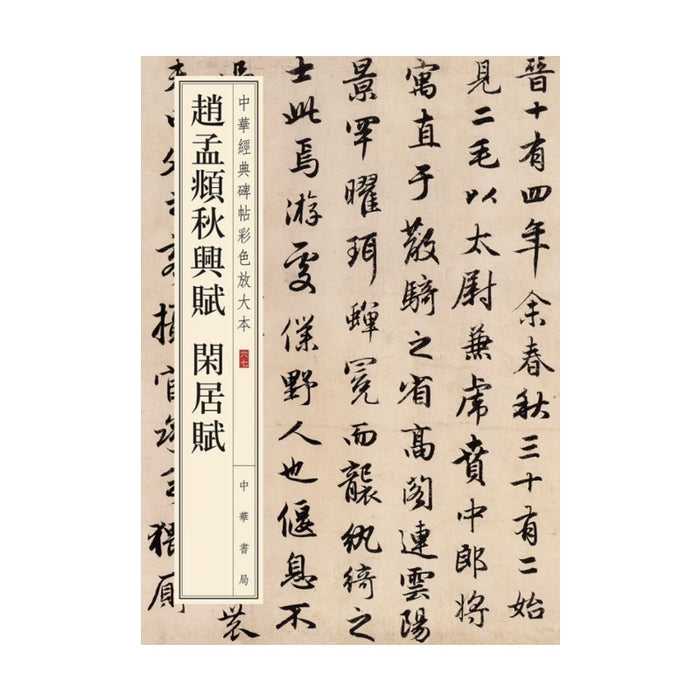 晉十有四年余春秋三十有二始
見二毛以太尉兼虎賁中郎將
寓直于散騎之省高閣連雲陽
景罕曜珥蟬冕而襲紈綺之
士此焉游處僕野人也偃息不
中華經典碑帖彩色放大本 六七 中華書局
趙孟頫秋興賦 閑居賦
猥厠